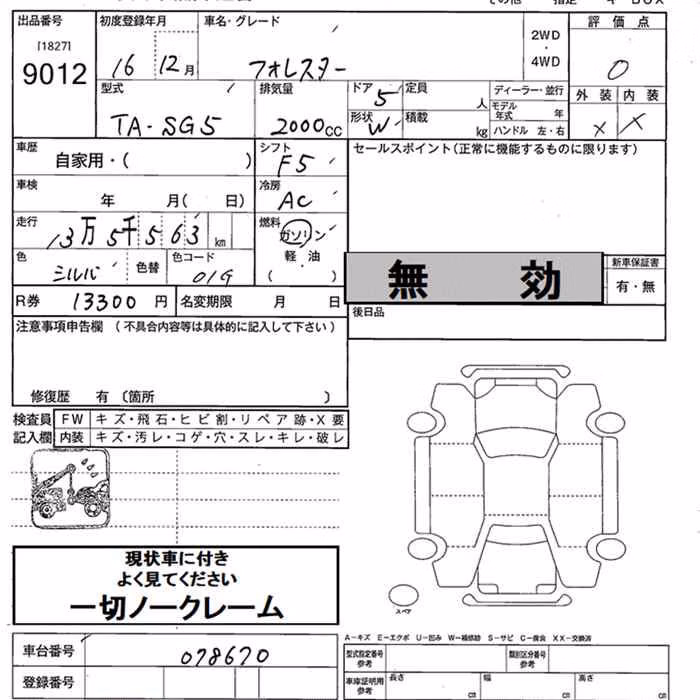 出品番号 初度登録年月 車名・グレード 2WD・4WD 評価点
[1827]
9012 16 12月 フォレスター 0
型式 排気量 ドア 5 定員 人 ディーラー・並行 外装 内装
TA-SG5 2000cc 形状 W 積載 kg モデル年式 年 X X
ハンドル 左・右
車歴 自家用・( ) シフト F5 セールスポイント(正常に機能するものに限ります)
車検 年 月( 日) 冷房 AC
走行 13万5千563km 燃料 ガソリン
軽油
( )
色 シルバ 色替 色コード 01G
無効 新車保証書
有・無
R券 13300円 名変期限 月 日 後日品
注意事項申告欄(不具合内容等は具体的に記入して下さい)
修復歴 有〔箇所 〕
検査員 FW キズ・飛石・ヒビ割・リペア跡・X要
記入欄 内装 キズ・汚レ・コゲ・穴・スレ・キレ・破レ
現状車に付き
よく見てください
一切ノークレーム
スペア
A-キズ E-エクボ U-凹み W-補修跡 S-サビ C-腐食 XX-交換済
車台番号 078670 型式指定番号 参考 類別区分番号 参考
登録番号 車庫証明用 参考 長さ cm 幅 cm 高さ cm